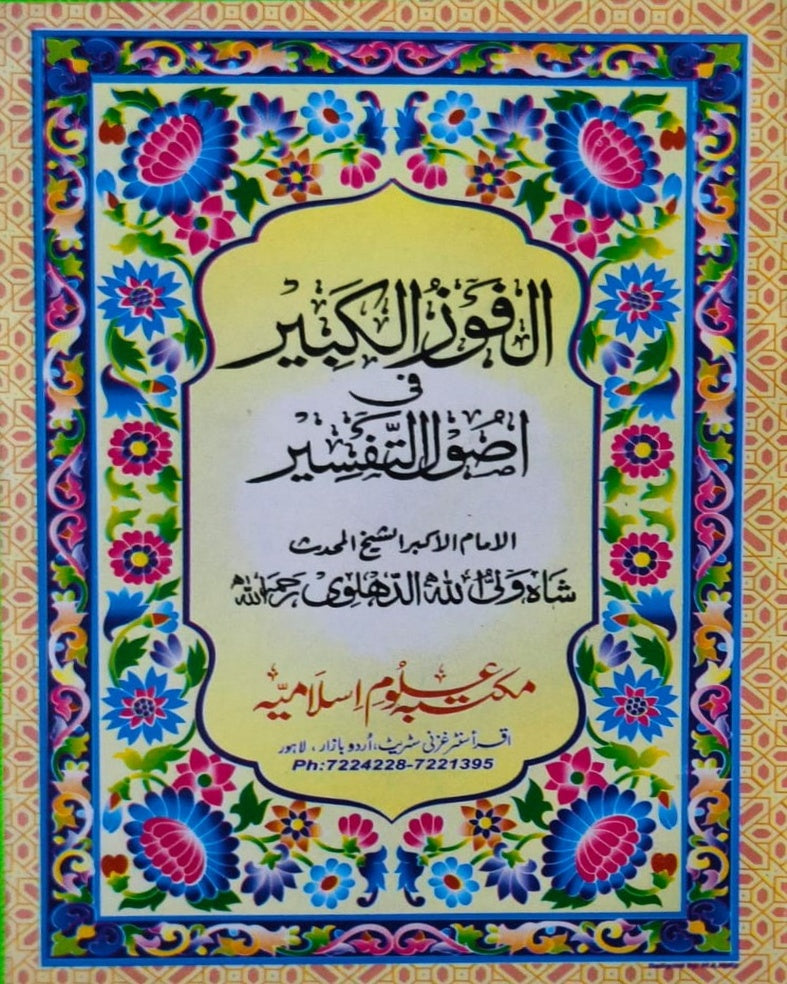 الفَوَزُ الكَبِیر
فی
اصُولُ التَّفسِیر
الامام الاکبر الشیخ المحدث
شَاہ وَلیُ اللہ الدّھلوِی رحمہ اللہ
مکتبہ علُومِ اِسلَامیّہ
اقرأ سنٹر غزنی سٹریٹ، اُردو بازار، لاہور
Ph:7224228-7221395